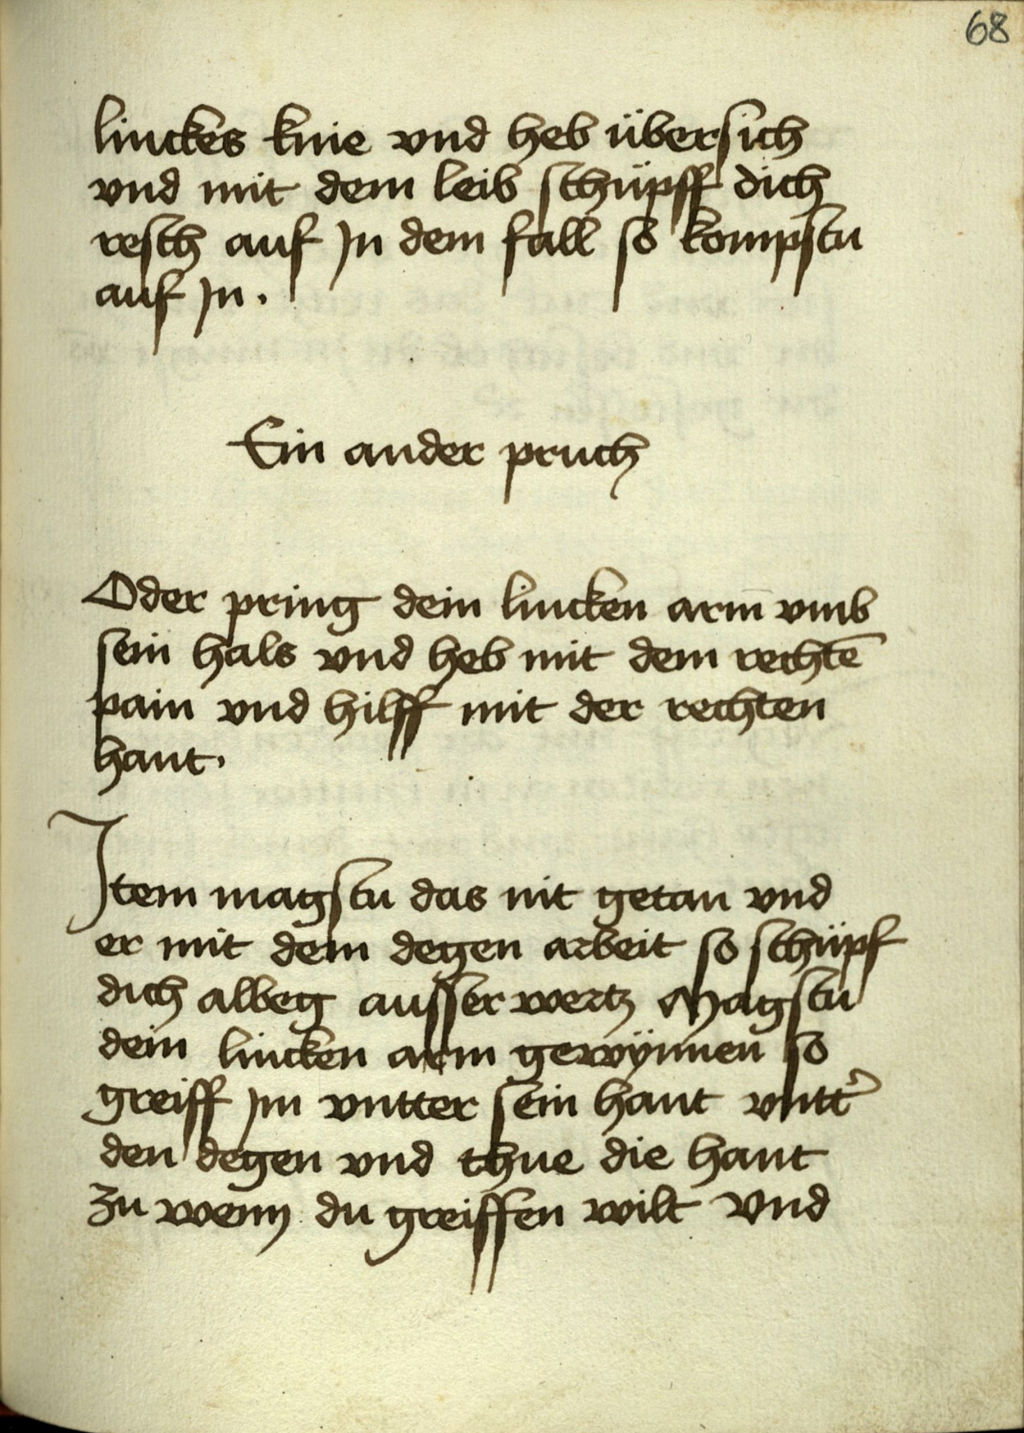 68
linckes knie vnd heb übersich
vnd mit dem leib schüpff dich
resch auf Jn dem fall so kompstu
auf Jn.
Ein ander pruch
Oder pring dein lincken arm̄ vmb
sein hals vnd heb mit dem rechtē
pain vnd hilff mit der rechten
hant.
Item magstu das nit getan vnd
er mit dem degen arbeit so schüpf
dich albeg ausser wertz Magstu
dein lincken arm gewÿnnen so
greiff Jm vntter sein hant vntt̛
den degen vnd thue die hant
zu wenn du greiffen wilt Vnd